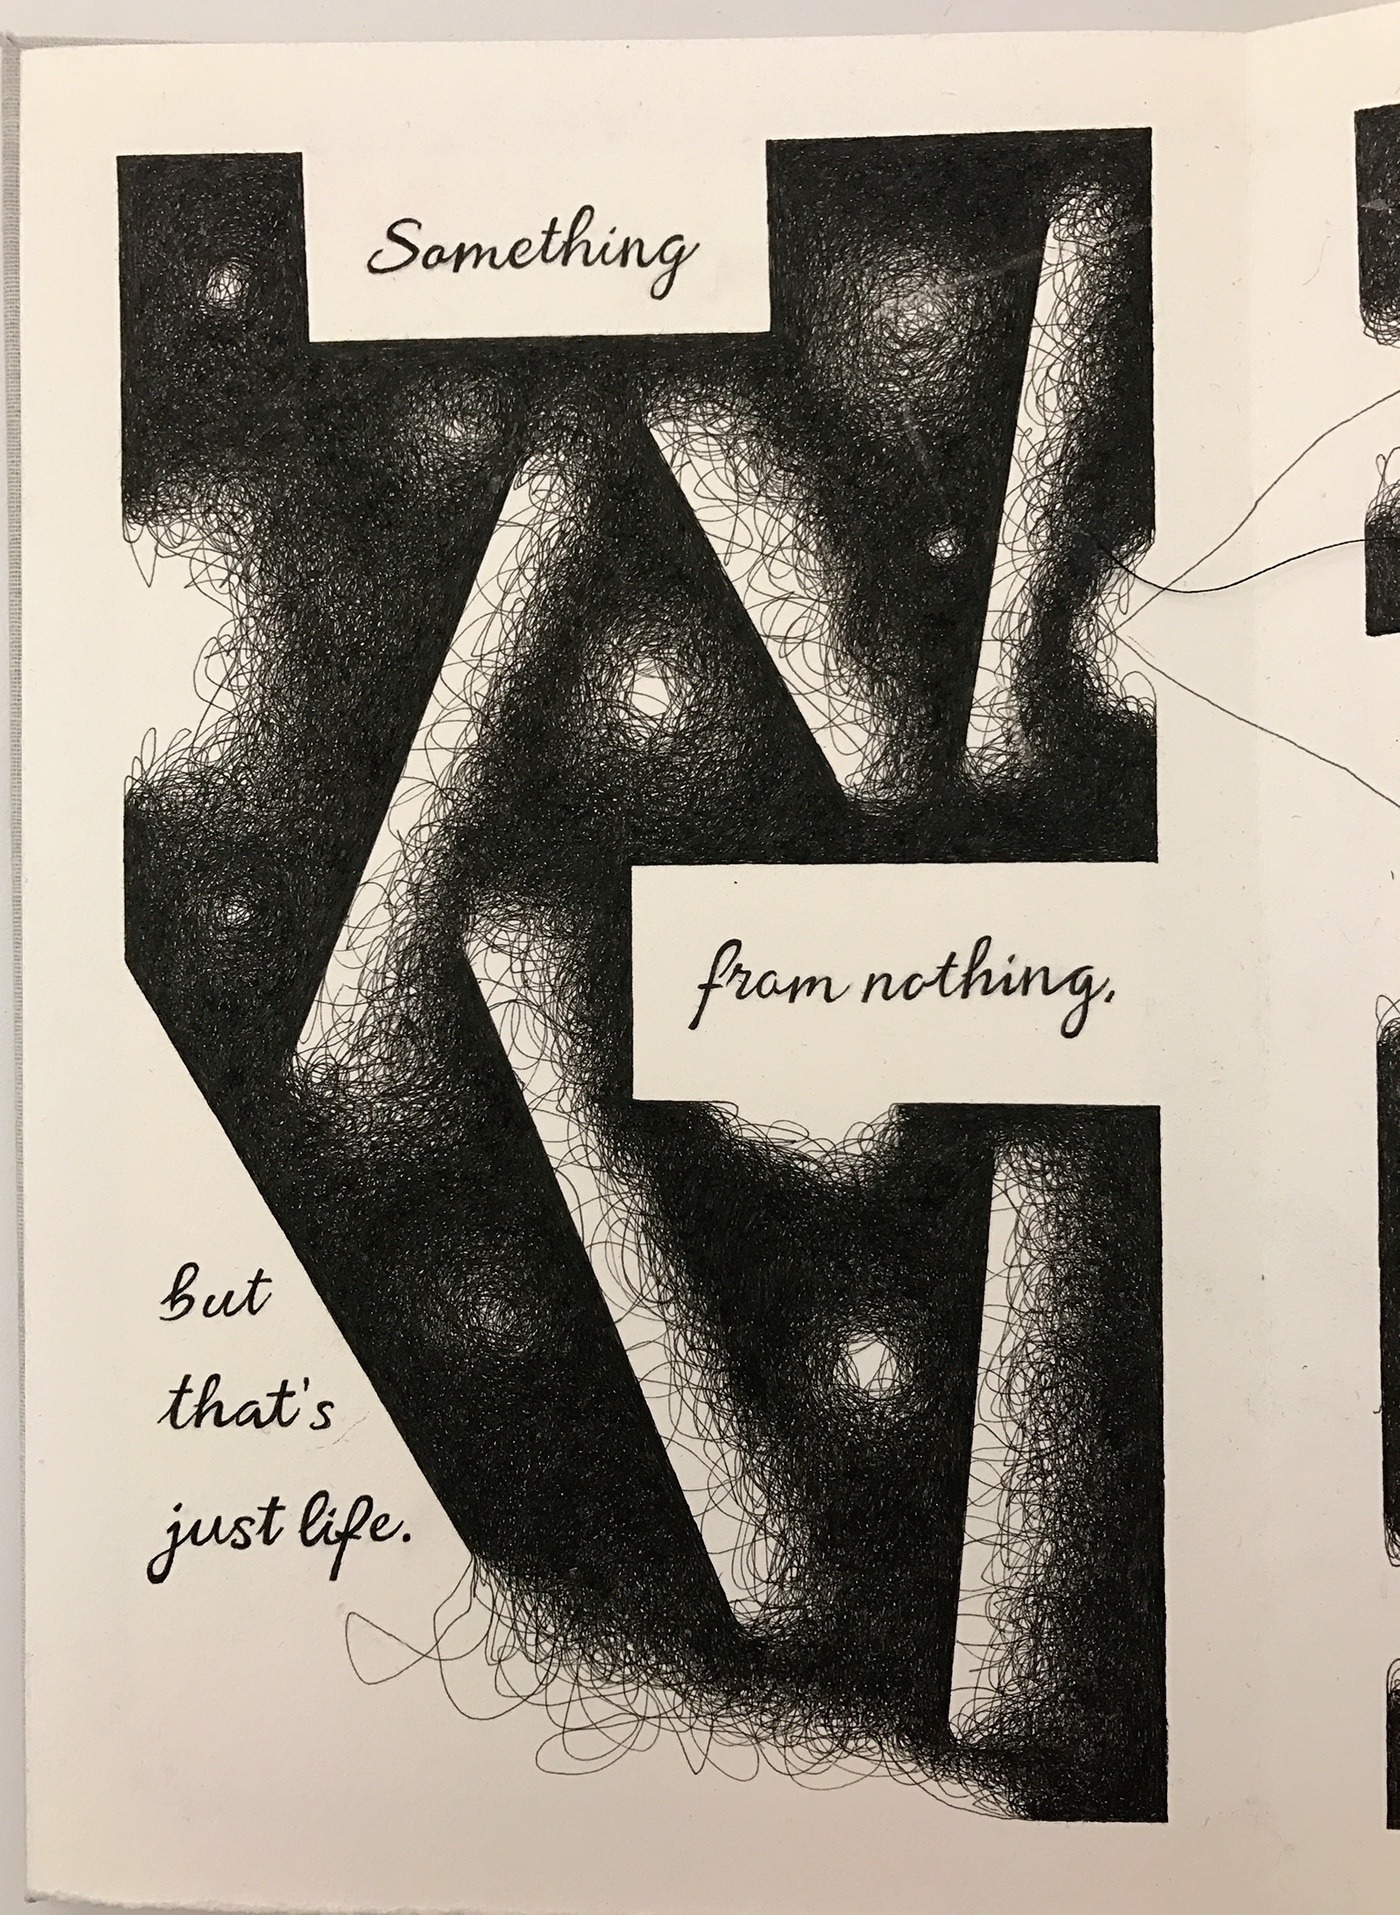 Something
from nothing,
but
that's
just life.